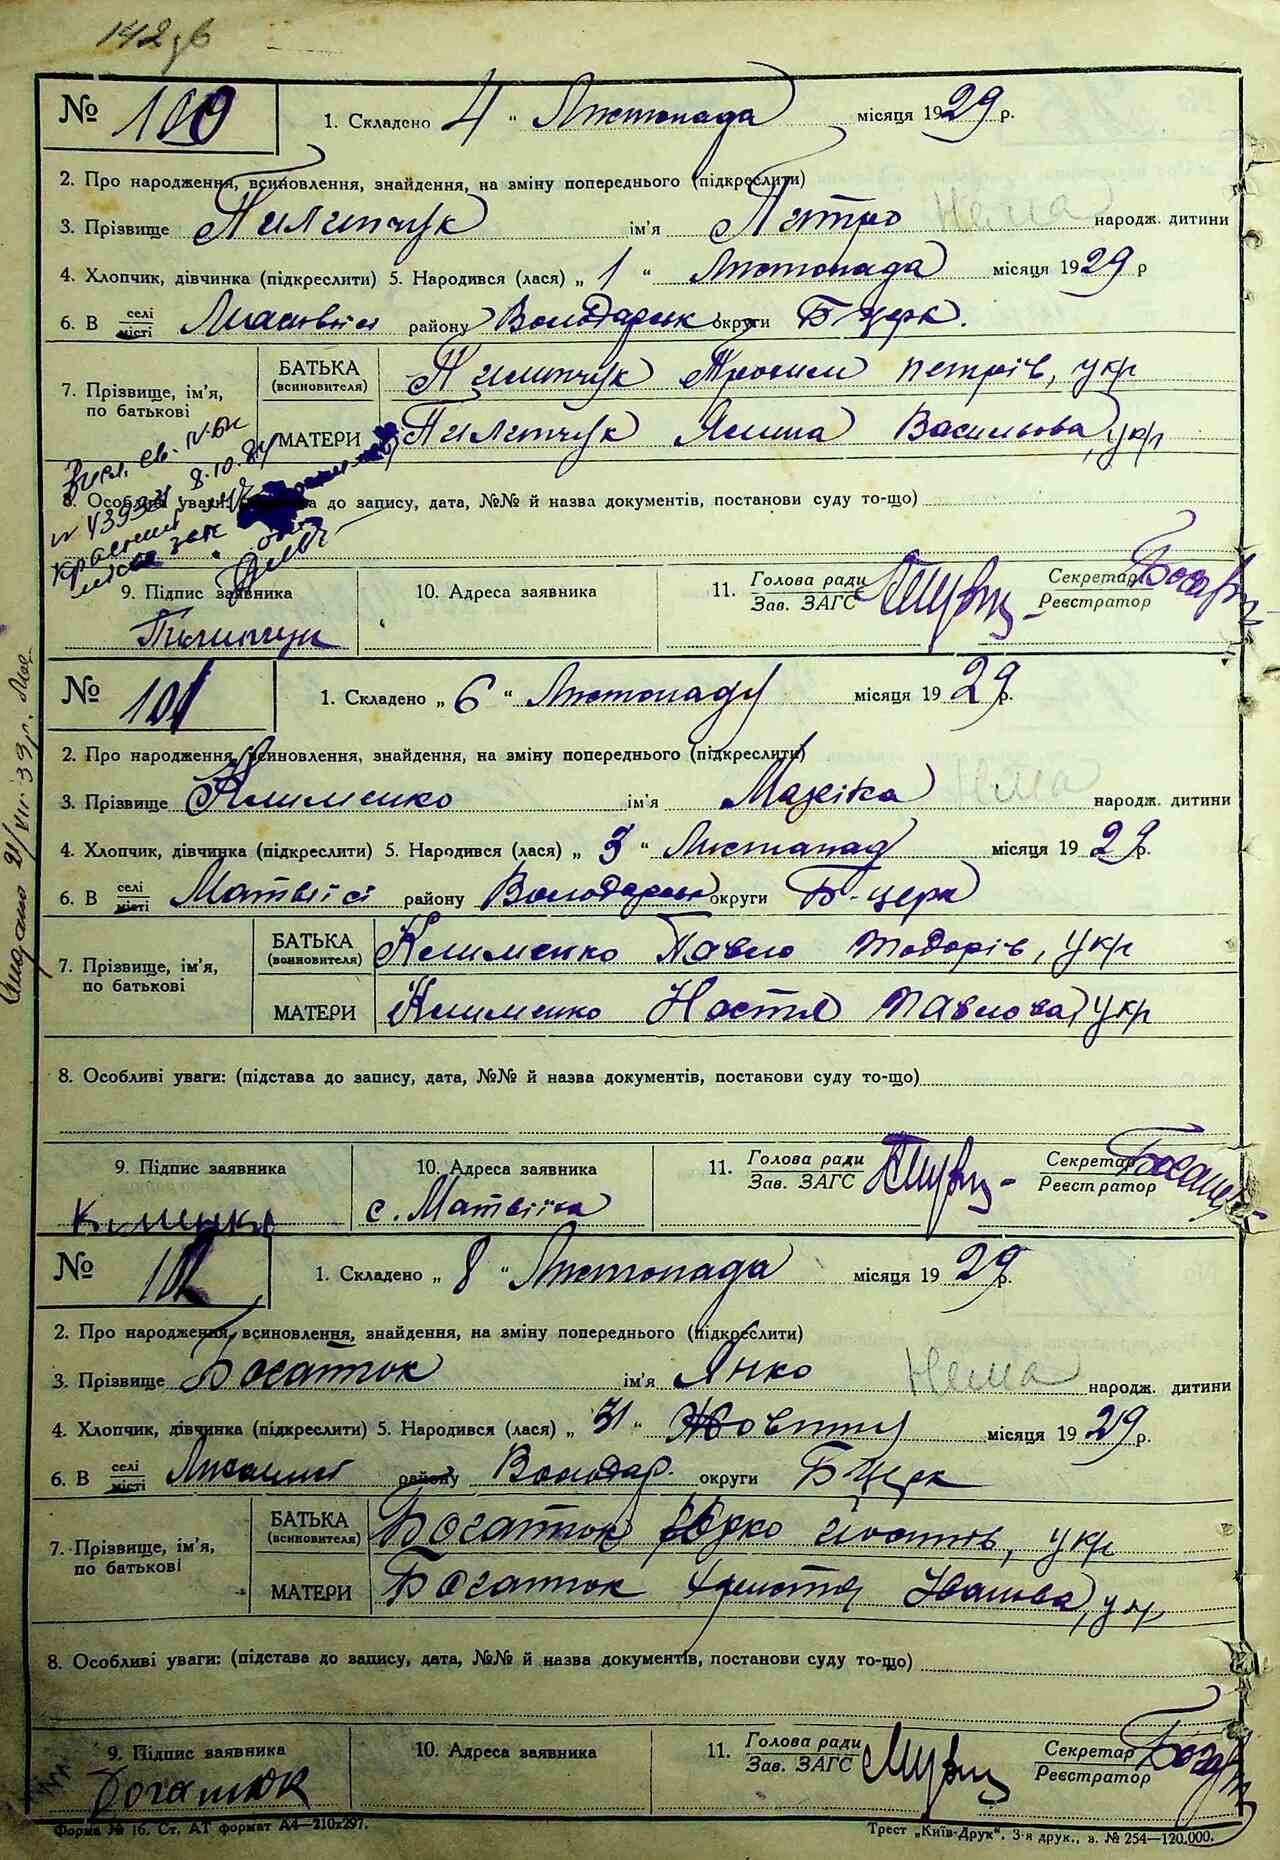 142 зв
№ 100
1. Складено 4 " Листопада місяця 1929 р.
2. Про народження, всиновлення, знайдення, на зміну попереднього (підкреслити)
3. Прізвище Пилипчук ім'я Петро Нема народж. дитини
4. Хлопчик, дівчинка (підкреслити) 5. Народився (лася) „ 1 " Листопада місяця 1929 р
6. В селі місті району Володарськ округи Б церк.
7. Прізвище, ім'я, по батькові
БАТЬКА (всиновителя) Пилипчук Трохим петрів, укр
МАТЕРИ Пилипчук Ялина Васильова, укр
8. Особливі уваги: до запису, дата, №№ й назва документів, постанови суду то-що)
8.10.84
9. Підпис заявника 10. Адреса заявника 11. Голова ради Зав. ЗАГС Секретар Реєстратор
Пилипчук
№ 101
1. Складено „ 6 " Листопаду місяця 1929 р.
2. Про народження, всиновлення, знайдення, на зміну попереднього (підкреслити)
3. Прізвище Клименко ім'я Нема народж. дитини
4. Хлопчик, дівчинка (підкреслити) 5. Народився (лася) „ 3 " Листопад місяця 1929 р.
6. В селі місті Матвісі району Володарськ округи Б-церк
7. Прізвище, ім'я, по батькові
БАТЬКА (всиновителя) Клименко Павло Тодорів, укр
МАТЕРИ Клименко Настя Павлова, укр
8. Особливі уваги: (підстава до запису, дата, №№ й назва документів, постанови суду то-що)
9. Підпис заявника 10. Адреса заявника 11. Голова ради Зав. ЗАГС Секретар Реєстратор
с. Матвіїха
№ 102
1. Складено „ 8 " Листопада місяця 1929 р.
2. Про народження, всиновлення, знайдення, на зміну попереднього (підкреслити)
3. Прізвище Богатюк ім'я Янко Нема народж. дитини
4. Хлопчик, дівчинка (підкреслити) 5. Народився (лася) „ 31 " Жовтня місяця 1929 р.
6. В селі місті району Володар. округи Б Церк
7. Прізвище, ім'я, по батькові
БАТЬКА (всиновителя) Богатюк укр
МАТЕРИ Богатюк Христя Іванова, укр
8. Особливі уваги: (підстава до запису, дата, №№ й назва документів, постанови суду то-що)
9. Підпис заявника 10. Адреса заявника 11. Голова ради Зав. ЗАГС Секретар Реєстратор
Богатюк
Форма № 16. Ст. АТ формат А4—210х297. Трест „Київ-Друк". 3-я друк., з. № 254—120.000.